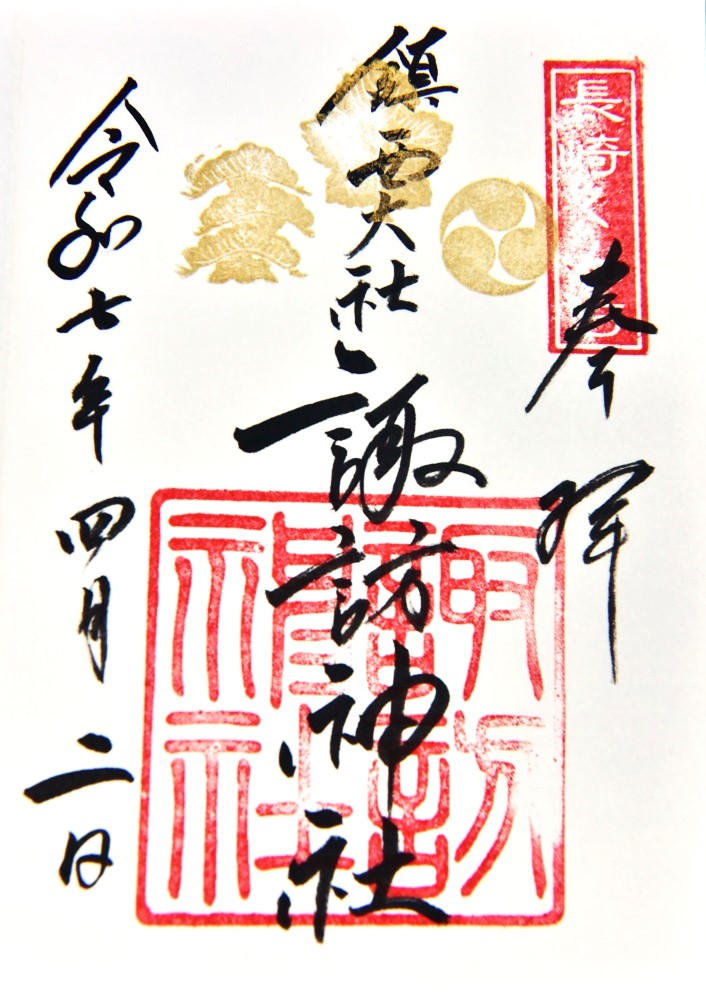 奉拝
鎮西大社
諏訪神社
諏訪神社
令和七年四月二日